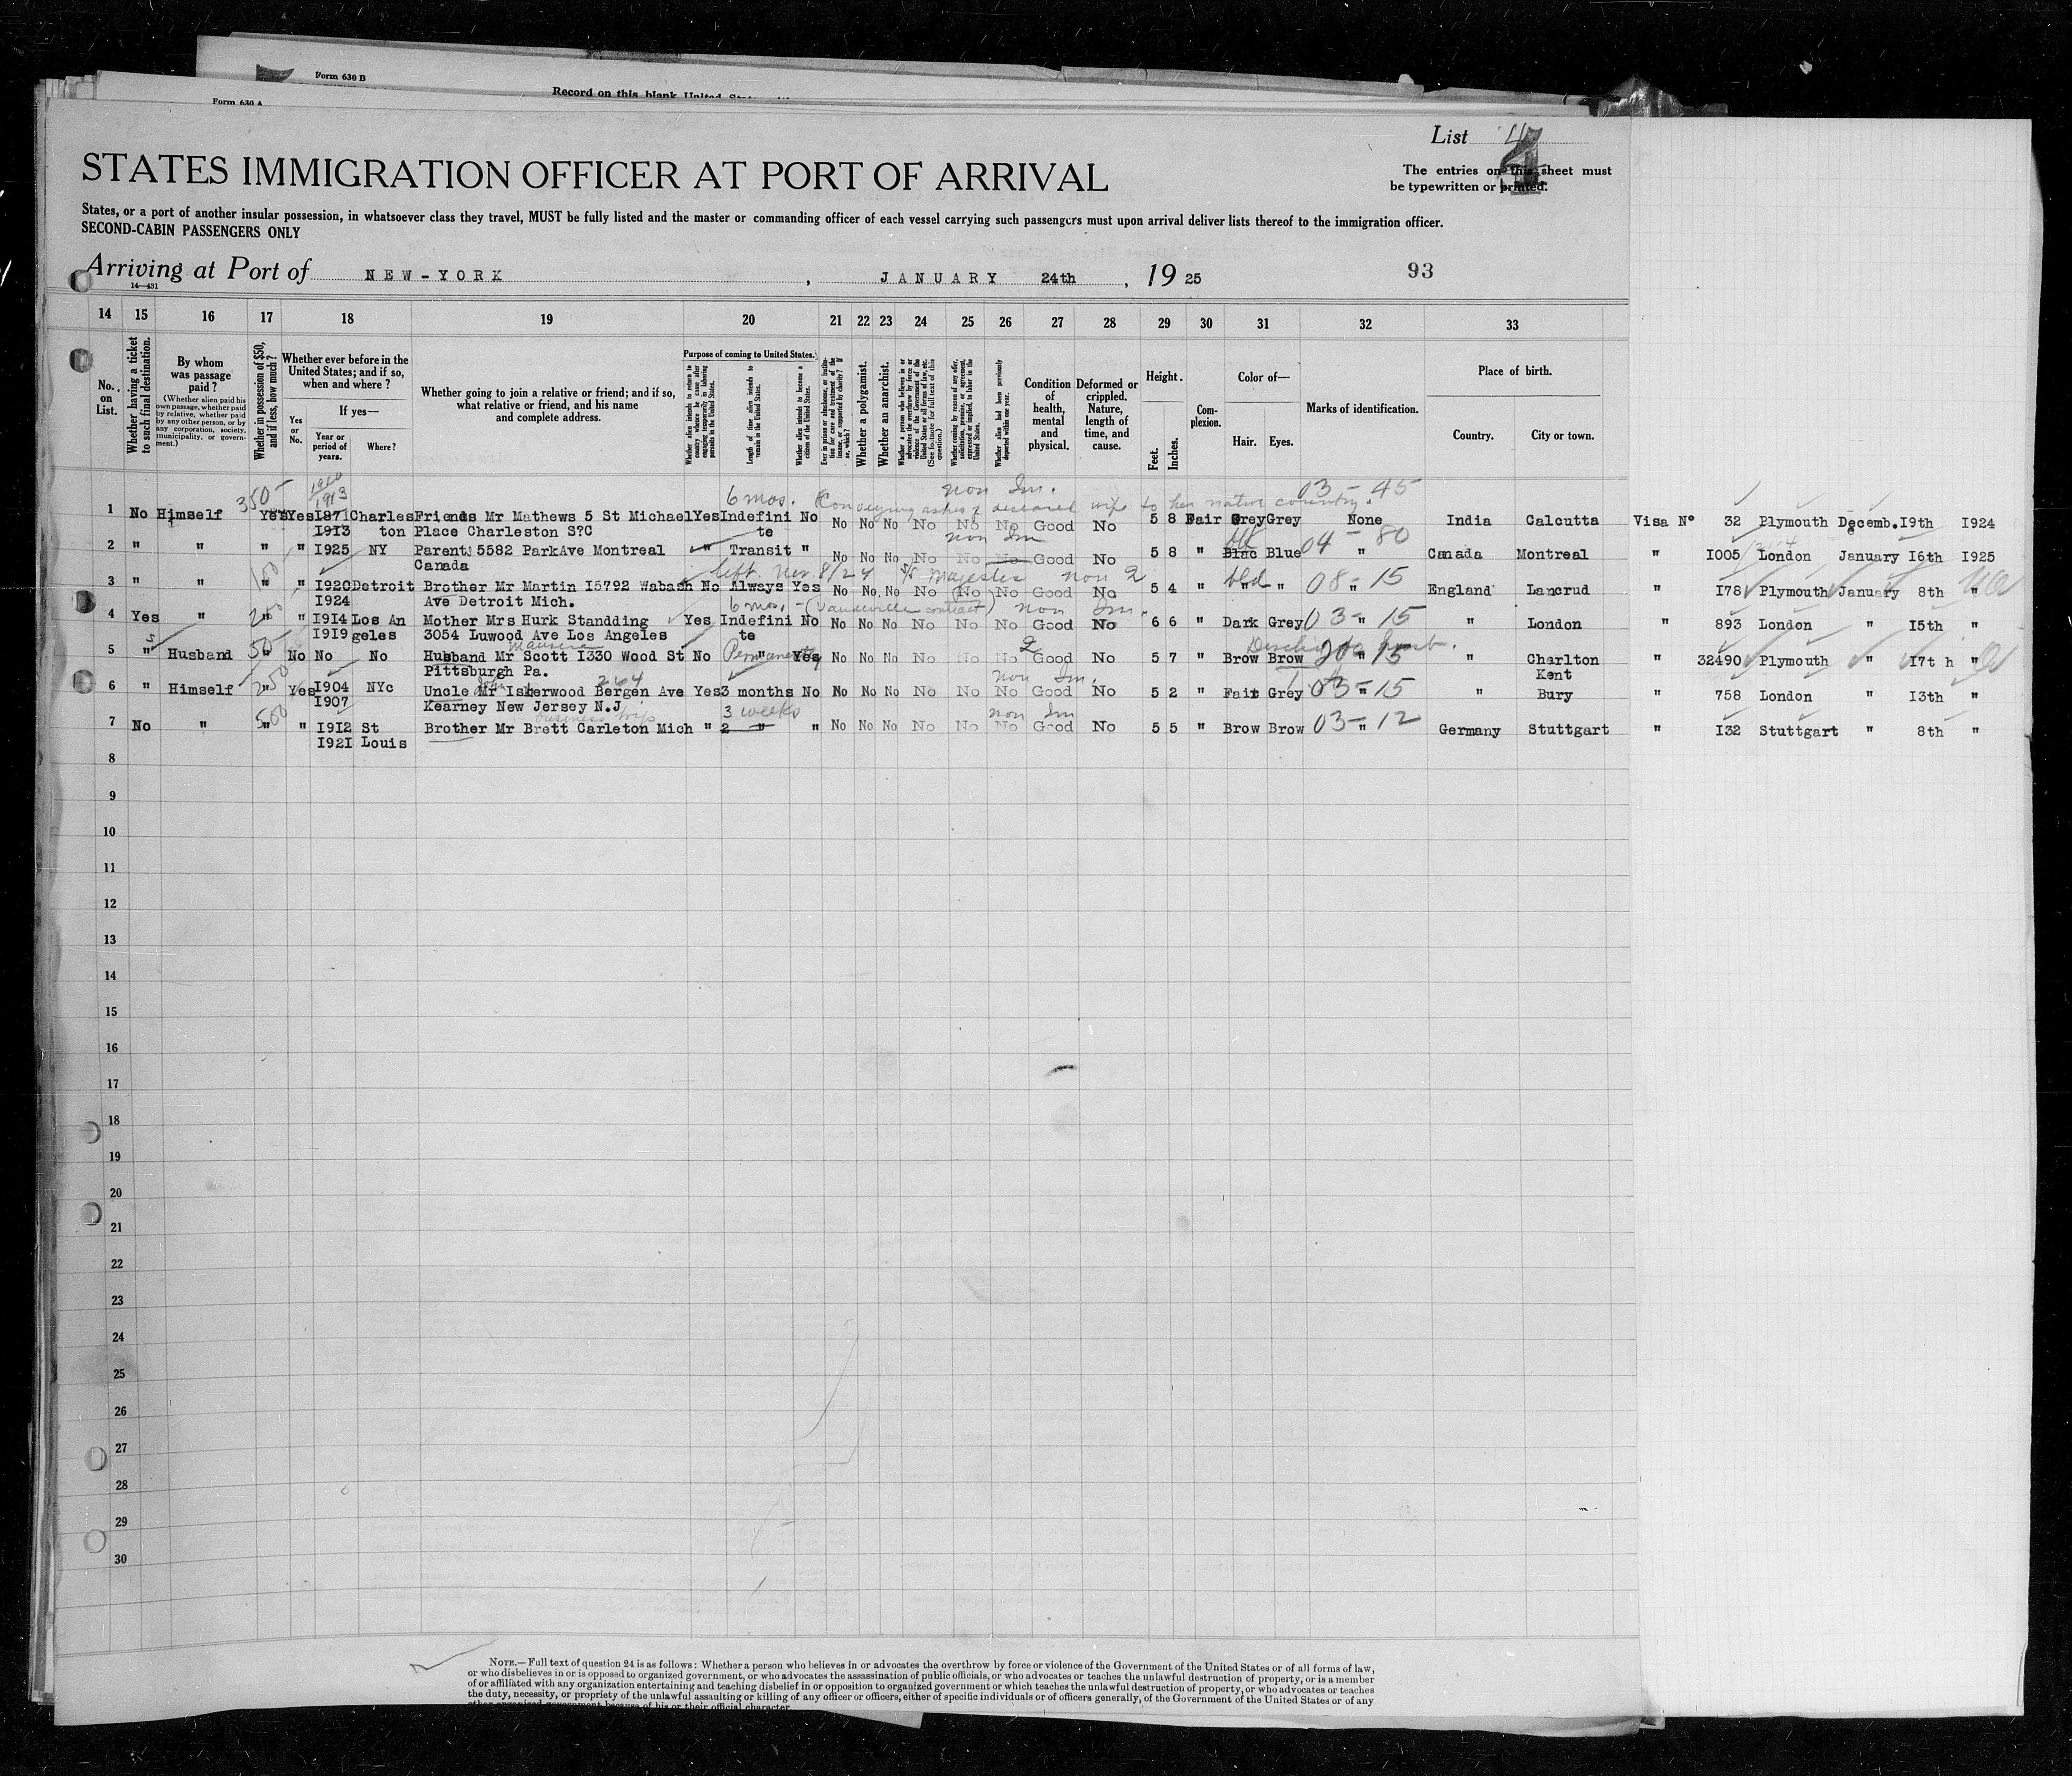 Form 630 B
Record on this blank United
Form 630 A
List 4
4
STATES IMMIGRATION OFFICER AT PORT OF ARRIVAL
The entries on this sheet must
be typewritten or printed.
States, or a port of another insular possession, in whatsoever class they travel, MUST be fully listed and the master or commanding officer of each vessel carrying such passengers must upon arrival deliver lists thereof to the immigration officer.
SECOND-CABIN PASSENGERS ONLY
Arriving at Port of NEW-YORK , JANUARY 24th , 19 25 93
14—431
14 15 16 17 18 19 20 21 22 23 24 25 26 27 28 29 30 31 32 33
No. on List.
Whether having a ticket to such final destination.
By whom was passage paid?
(Whether alien paid his own passage, whether paid by relative, whether paid by any other person, or by any corporation, society, municipality, or government.)
Whether in possession of $50, and if less, how much?
Whether ever before in the United States; and if so, when and where?
Yes or No.
If yes—
Year or period of years.
Where?
Whether going to join a relative or friend; and if so, what relative or friend, and his name and complete address.
Purpose of coming to United States.
Whether alien intends to return to country whence he came after engaging temporarily in laboring pursuits in the United States.
Length of time alien intends to remain in the United States.
Whether alien intends to become a citizen of the United States.
Ever in prison or almshouse, or institution for care and treatment of the insane, or supported by charity? If so, which?
Whether a polygamist.
Whether an anarchist.
Whether a person who believes in or advocates the overthrow by force or violence of the Government of the United States or all forms of law, etc. (See footnote for full text of this question.)
Whether coming by reason of any offer, solicitation, promise, or agreement, expressed or implied, to labor in the United States.
Whether alien had been previously deported within one year.
Condition of health, mental and physical.
Deformed or crippled. Nature, length of time, and cause.
Height.
Feet.
Inches.
Complexion.
Color of—
Hair. Eyes.
Marks of identification.
Place of birth.
Country. City or town.
350- 1910 1913 6 mos. non Im. 03-45
Conveying ashes of deceased wife to her native country.
1 No Himself Yes Yes 1871 Charles Friends Mr Mathews 5 St Michael Yes Indefini No No No No No No No Good No 5 8 Fair Grey Grey None India Calcutta Visa N° 32 Plymouth Decemb. I9th I924
I9I3 ton Place Charleston S?C te
non Im
2 " " " " I925 NY Parent 5582 ParkAve Montreal " Transit " No No No No No No Good No 5 8 " Blac Blue 04-80 " Canada Montreal " I005 London January I6th I925
Canada
left Nov. 8/24 S/S Majestic non 2
3 " " 100 " " I920 Detroit Brother Mr Martin I5792 Wabash No Always Yes No No. No No No No Good No 5 4 " bld " " 08-15 " England Lancrud " I78 Plymouth January 8th "
I924 Ave Detroit Mich.
6 mos. - (Vaudeville contract) non Im.
4 Yes " 200 " " I9I4 Los An Mother Mrs Hurk Standding Yes Indefini No No No No No No No Good No 6 6 " Dark Grey 03-15 " " London " 893 London " I5th "
I9I9 geles 3054 Luwood Ave Los Angeles te
5 " Husband 50 " No No No Husband Mr Scott I330 Wood St No Permanently Yes No No No No No No 2 Good No 5 7 " Brow Brow 20-15 " " Charlton " 32490 Plymouth " I7t h "
Pittsburgh Pa. Kent
John 264 non Im.
6 " Himself 250 " Yes I904 NYc Uncle Mr Isherwood Bergen Ave Yes 3 months No No No No No No No Good No 5 2 " Fair Grey 03-15 " Bury " 758 London " I3th "
I907 Kearney New Jersey N.J
business trip 3 weeks non Im
7 No " 500 " " I9I2 St Brother Mr Brett Carleton Mich " 2 " " No No No No No No Good No 5 5 " Brow Brow 03-12 " Germany Stuttgart " I32 Stuttgart " 8th "
I92I Louis
8
9
10
11
12
13
14
15
16
17
18
19
20
21
22
23
24
25
26
27
28
29
30
NOTE.—Full text of question 24 is as follows: Whether a person who believes in or advocates the overthrow by force or violence of the Government of the United States or of all forms of law,
or who disbelieves in or is opposed to organized government, or who advocates the assassination of public officials, or who advocates or teaches the unlawful destruction of property, or is a member
of or affiliated with any organization entertaining and teaching disbelief in or opposition to organized government or which teaches the unlawful destruction of property, or who advocates or teaches
the duty, necessity, or propriety of the unlawful assaulting or killing of any officer or officers, either of specific individuals or of officers generally, of the Government of the United States or of any
other organized government because of his or their official character.